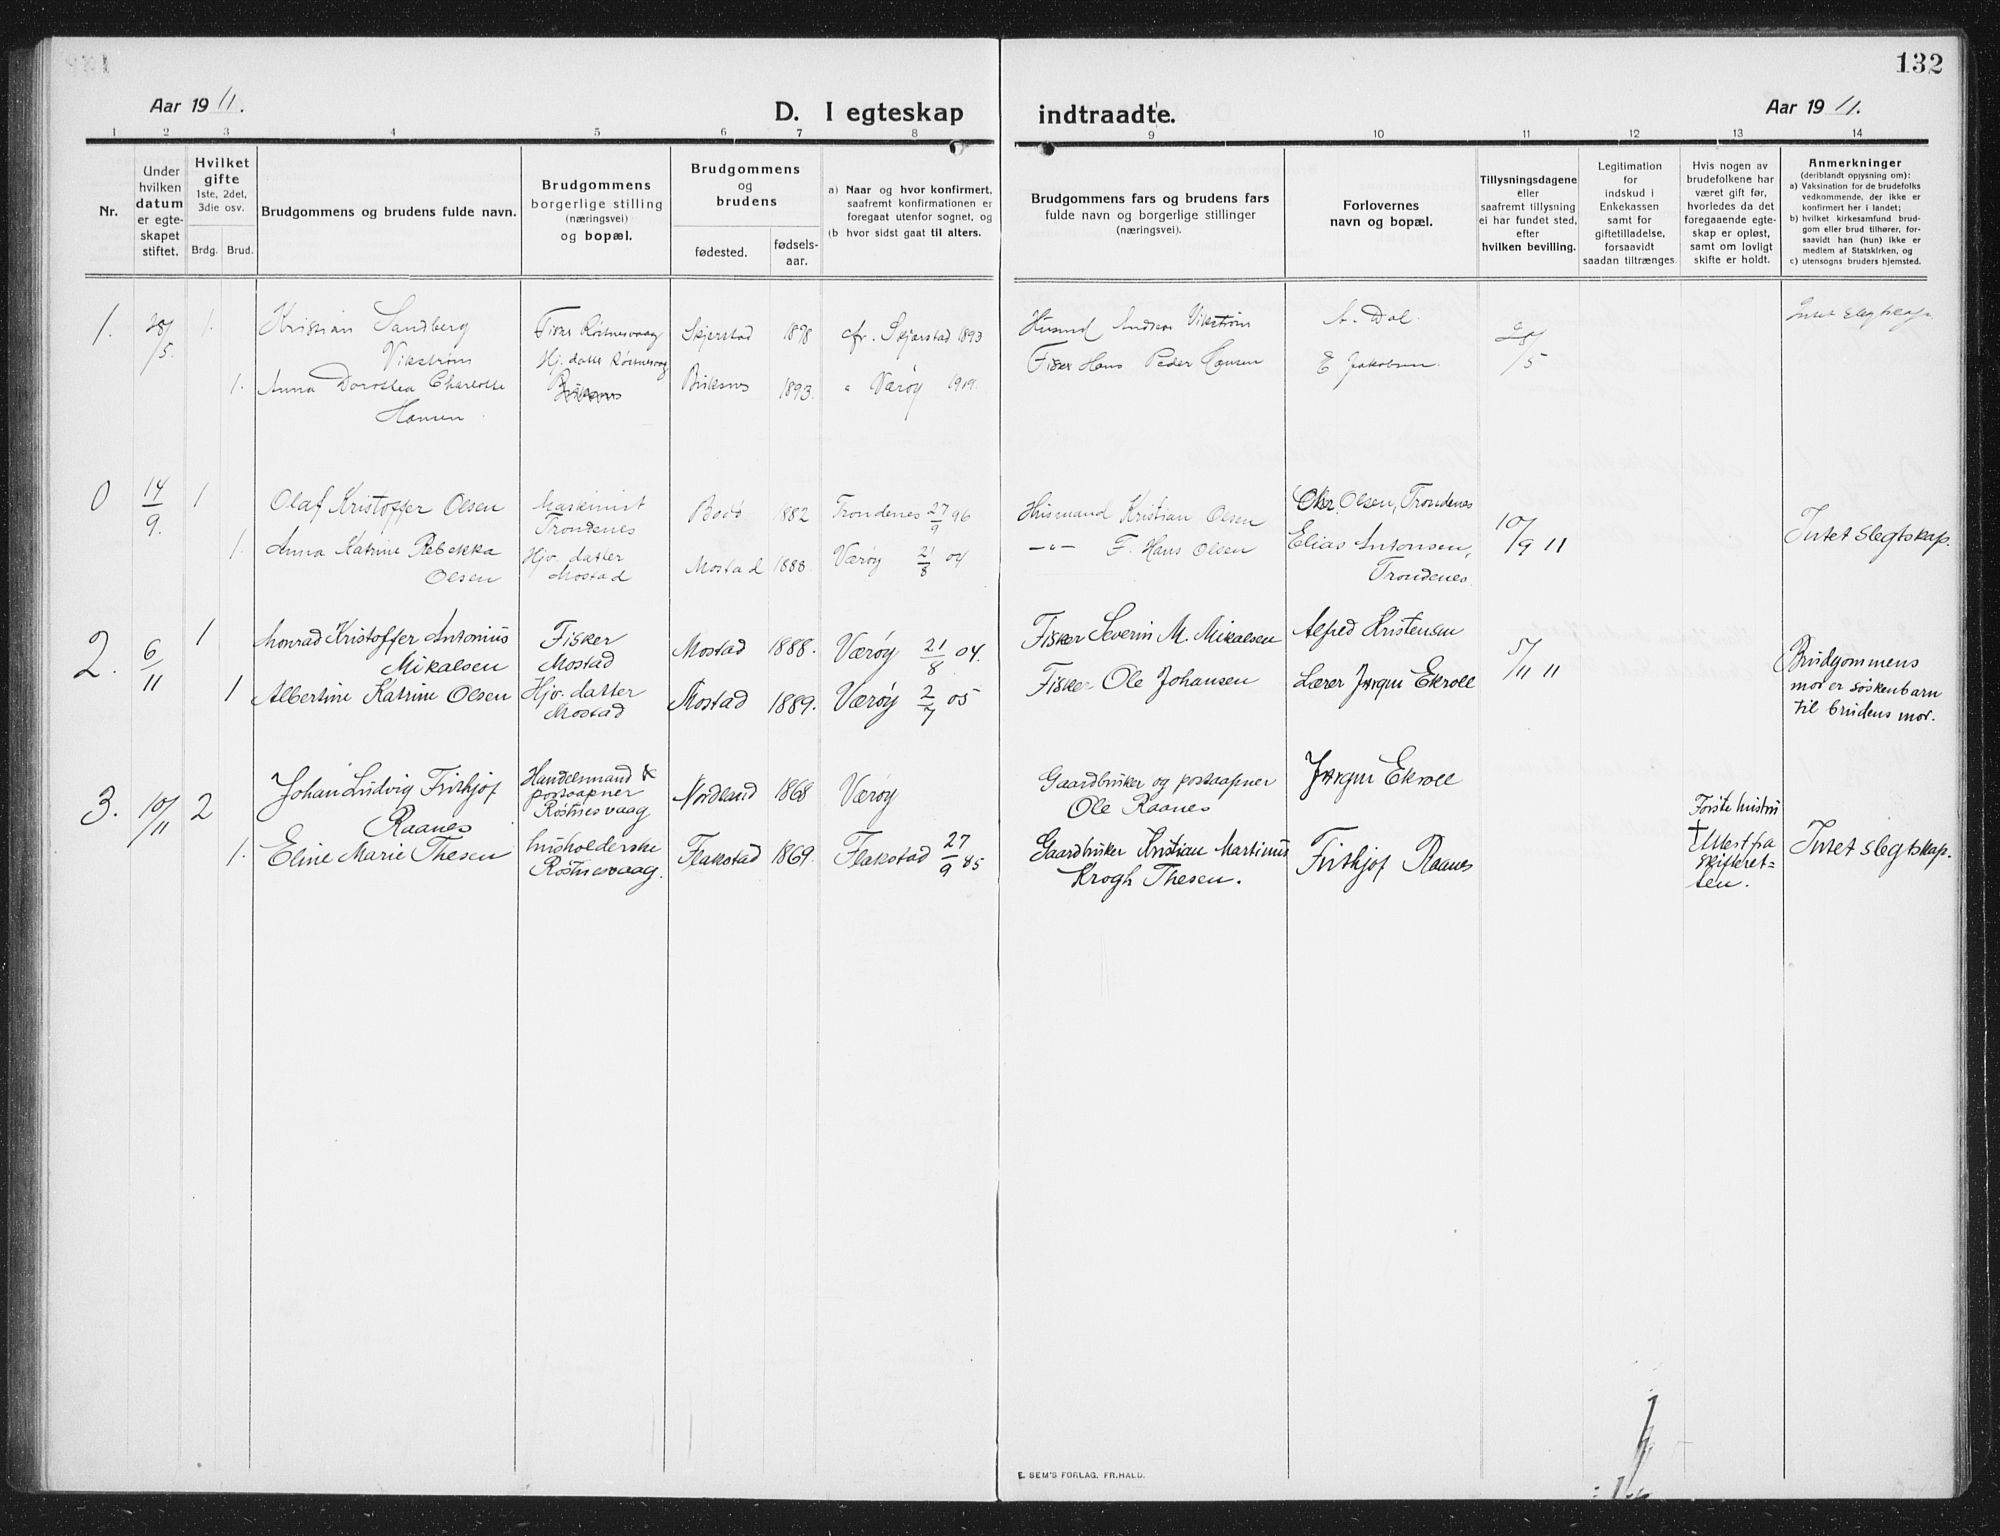 132
Aar 1911.
D. I egteskap indtraadte.
Aar 1911.
1 2 3 4 5 6 7 8 9 10 11 12 13 14
Nr.
Under
hvilken
datum
er egte-
skapet
stiftet.
Hvilket
gifte
1ste, 2det,
3die osv.
Brdg. Brud.
Brudgommens og brudens fulde navn.
Brudgommens
borgerlige stilling
(næringsvei)
og bopæl.
Brudgommens
og
brudens
fødested.
fødsels-
aar.
a) Naar og hvor konfirmert,
saafremt konfirmationen er
foregaat utenfor sognet, og
(b hvor sidst gaat til alters.
Brudgommens fars og brudens fars
fulde navn og borgerlige stillinger
(næringsvei).
Forlovernes
navn og bopæl.
Tillysningsdagene
eller
saafremt tillysning
ei har fundet sted,
efter
hvilken bevilling.
Legitimation
for
indskud i
Enkekassen
samt for
giftetilladelse,
forsaavidt
saadan tiltrænges.
Hvis nogen av
brudefolkene har
været gift før,
hvorledes da det
foregaaende egte-
skap er opløst,
samt om lovligt
skifte er holdt.
Anmerkninger
(deriblandt opysning om):
a) Vaksination for de brudefolks
vedkommende, der ikke er
konfirmert her i landet;
b) hvilket kirkesamfund brud-
gom eller brud tilhører, for-
saavidt han (hun) ikke er
medlem af Statskirken, og
c) utensogns bruders hjemsted.
1. 28/5. 1. Kristian Sandberg
Vikstrøm
Fisker Røstnesvaag
Skjerstad 1878 cfr. Skjærstad 1893
Husmd Andreas Vikstrøm
A. Dal.
28/5
Intet slegtskap.
1. Anna Dorothea Charlotte
Hansen
Hj. datter Røstnesvaag
Buksnes
Buksnes 1893. " Værøy 1909.
Fisker Hans Peder Hansen
E Jakobsen.
0 14/9. 1 Olaf Kristoffer Olsen
Maskinist
Trondenes
Bodø 1882 Trondenes 27/9 96
Husmand Kristian Olsen
Olsen, Trondenes
10/9 11
Intet slegtskap.
1. Anna Katrine Rebekka
Olsen
Hjv. datter
Mostad
Mostad 1888. Værøy 21/8 04
—"— F. Hans Olsen
Elias Antonsen,
Trondenes.
2. 6/11 1 Konrad Kristoffer Antonius
Mikalsen
Fisker
Mostad
Mostad 1888. Værøy 21/8 04.
Fisker Severin M. Mikalsen
Alfred Kristensen
5/11 11
Brudgommens
mor er søskenbarn
til brudens mor.
1 Albertine Katrine Olsen
Hjv. datter
Mostad
Mostad 1889. Værøy 2/7 05
Fisker Ole Johansen
Lærer Jørgen Ekroll
3. 10/11 2 Johan Ludvig Frithjof
Raanes
Handelsmand &
postaapner
Røstnesvaag
Nordland 1868 Værøy
Gaardbruker og postaapner
Ole Raanes
Jørgen Ekroll
Første hustru
†
Attest fra
skifteret-
ten.
Intet slegtskap.
1. Eline Marie Thesen
husholderske
Røstnesvaag.
Flakstad 1869. Flakstad 27/9 85
Gaardbruker Kristian Martinus
Krogh Thesen.
Frithjof Raanes
E. SEM'S FORLAG. FR.HALD.